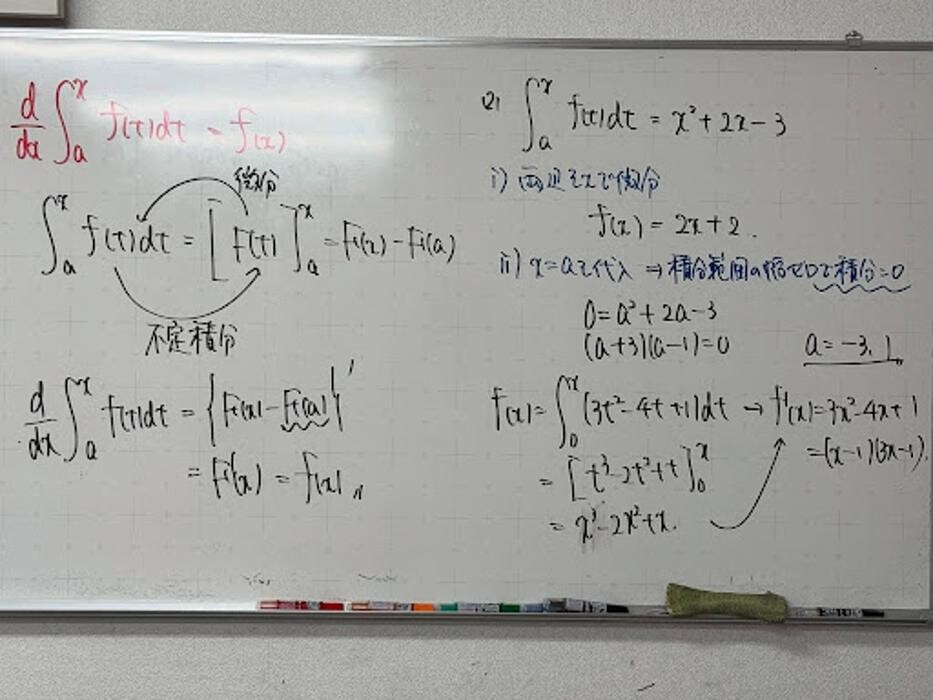 d/dx ∫_a^x f(t)dt = f(x)
微分
∫_a^x f(t)dt = [F(t)]_a^x = F(x) - F(a)
不定積分
d/dx ∫_a^x f(t)dt = {F(x) - F(a)}'
= F'(x) = f(x)〃
例) ∫_a^x f(t)dt = x² + 2x - 3
i) 両辺をxで微分
f(x) = 2x + 2.
ii) x = aを代入 → 積分範囲の幅ゼロで積分=0
0 = a² + 2a - 3
(a+3)(a-1) = 0 a = -3, 1
f(x) = ∫_0^x (3t² - 4t + 1)dt → f'(x) = 3x² - 4x + 1
= [t³ - 2t² + t]_0^x = (x-1)(3x-1).
= x³ - 2x² + x.